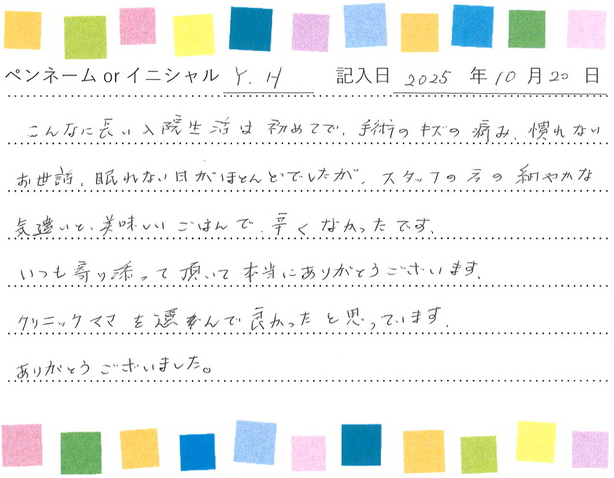 ペンネーム or イニシャル Y. H 記入日 2025 年 10 月 20 日
こんなに長い入院生活は初めてで、手術のキズの痛み、慣れない
お世話、眠れない日がほとんどでしたが、スタッフの方の細やかな
気遣いと、美味しいごはんで、辛くなかったです、
いつも寄り添って頂いて本当にありがとうございます、
クリニックママを選んで良かったと思っています、
ありがとうございました。